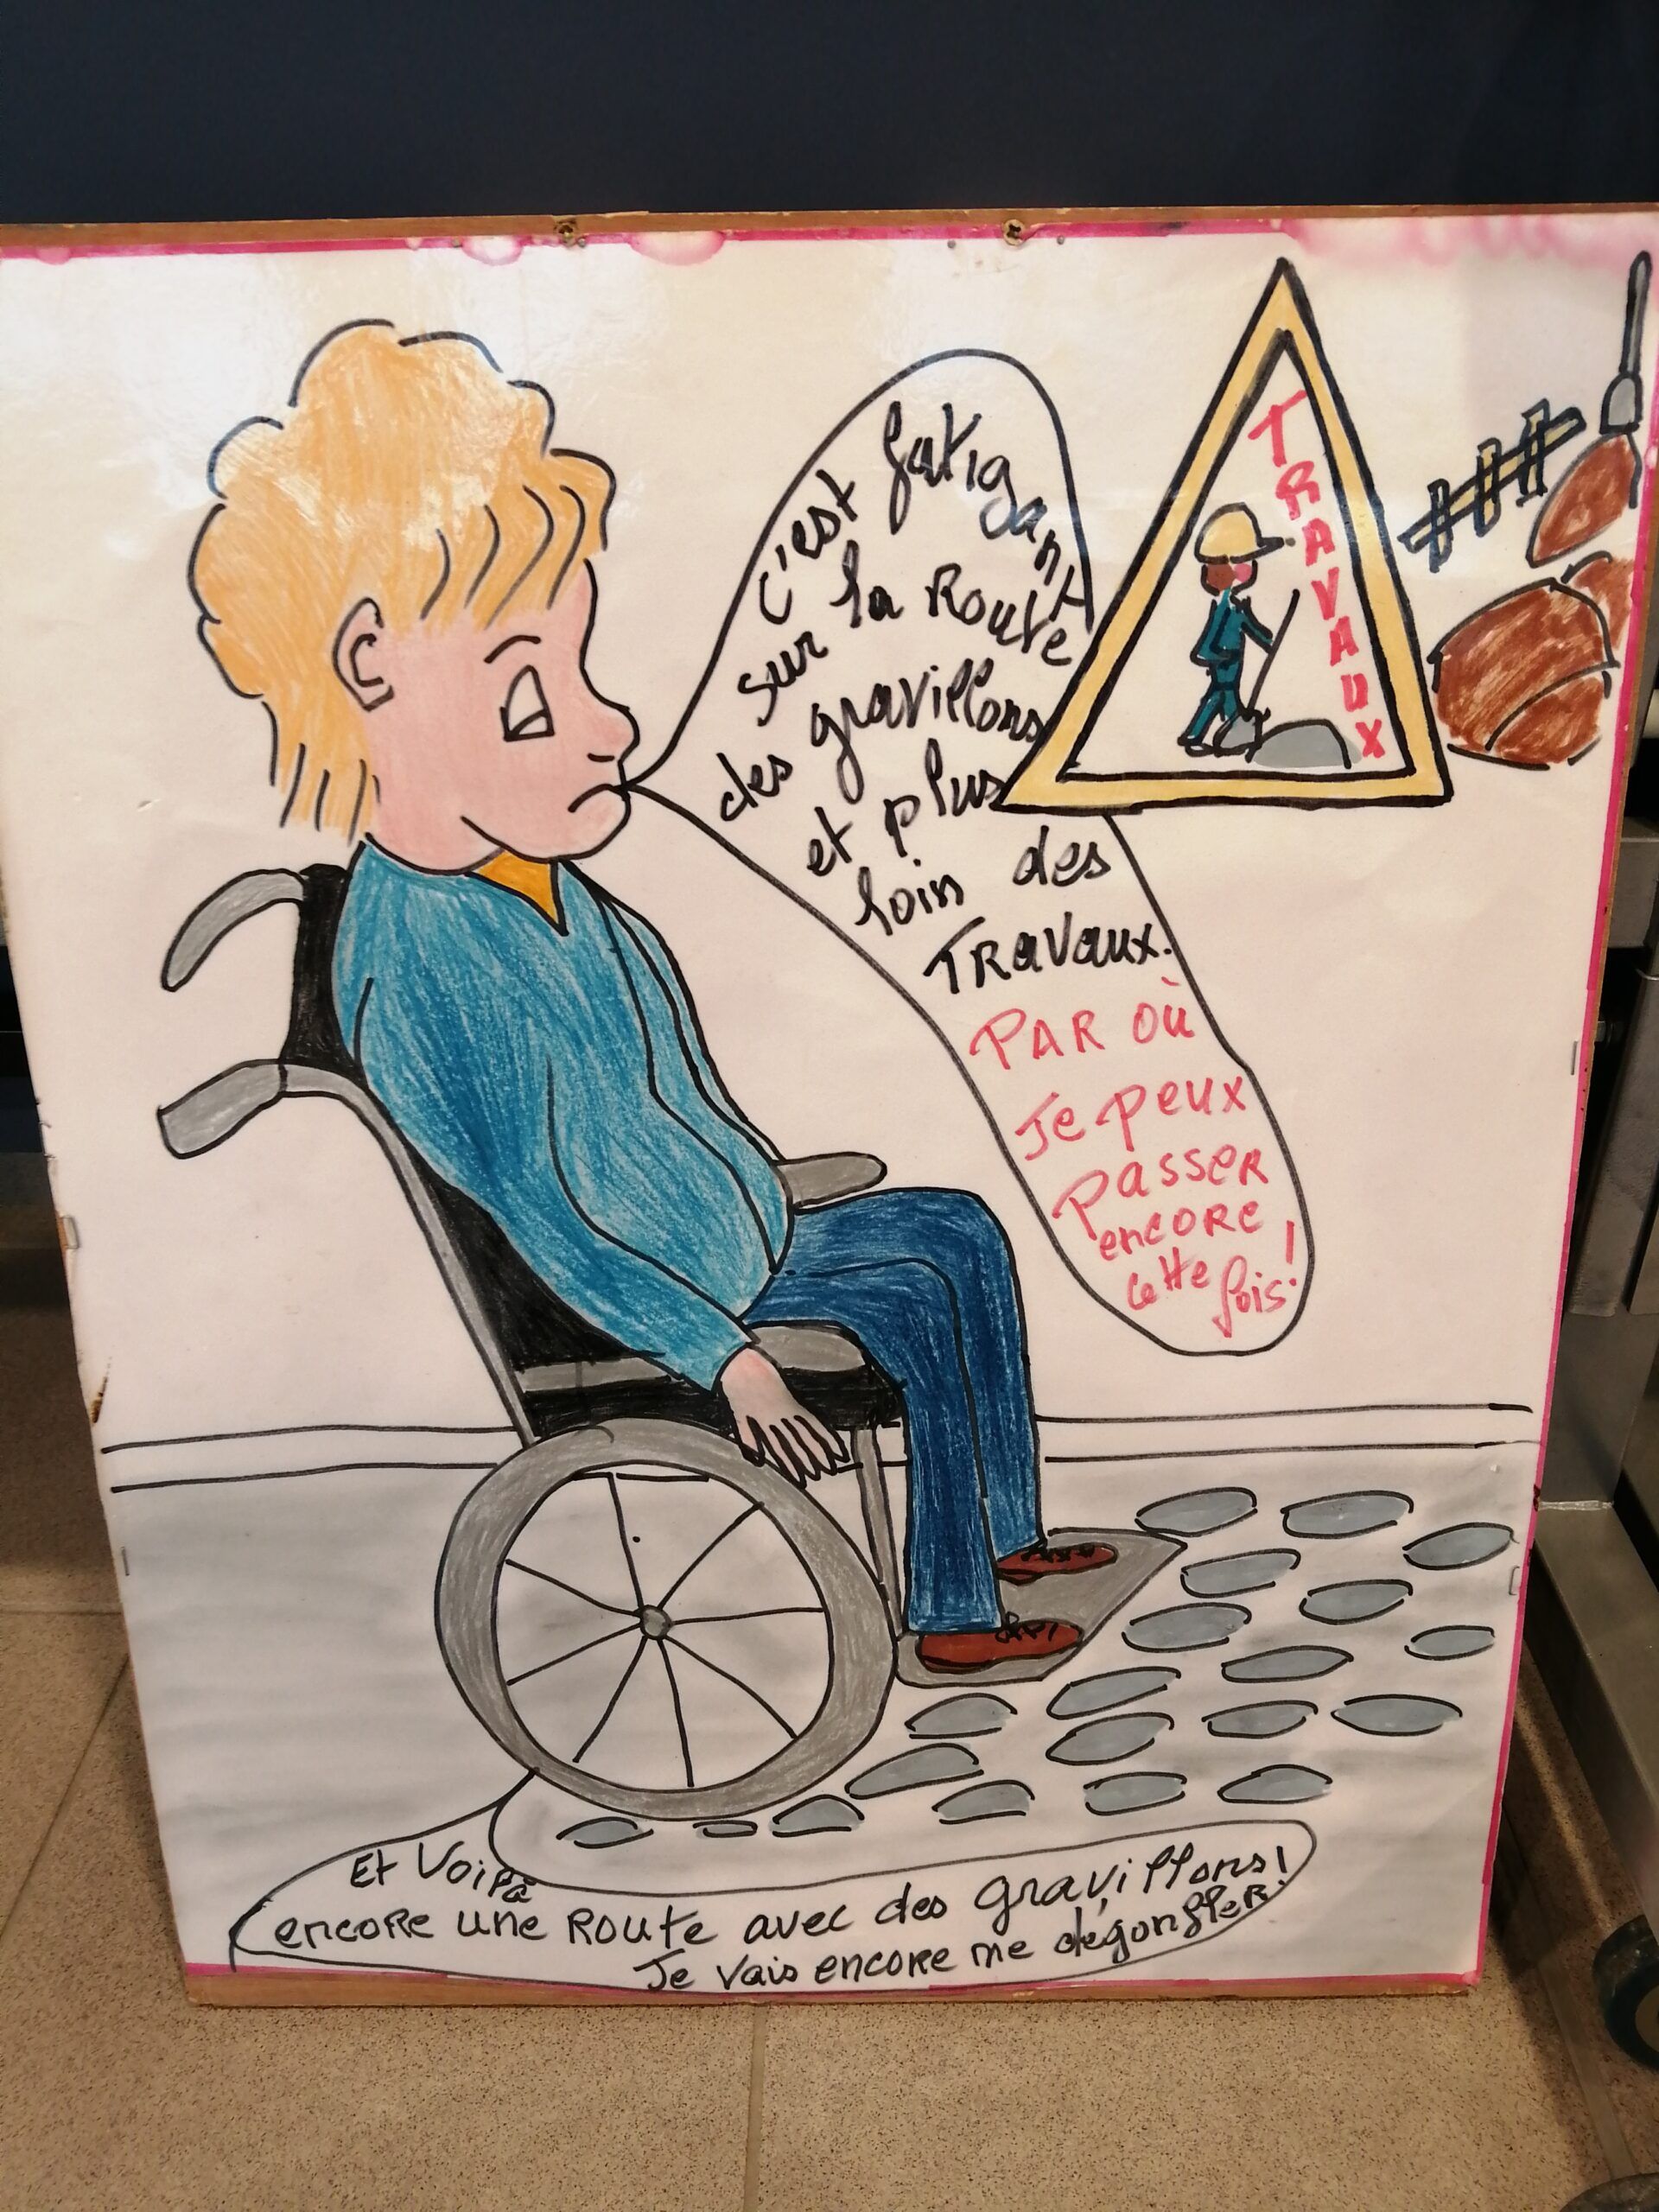 c'est fatigant
sur la Route
des gravillons
et plus
loin des
TRavaux.
PAR où
Je peux
passeR
encoRe
cette fois!
TRAVAUX
Et Voilà
encoRe une Route avec des gravillons!
Je vais encoRe me dégonfleR!